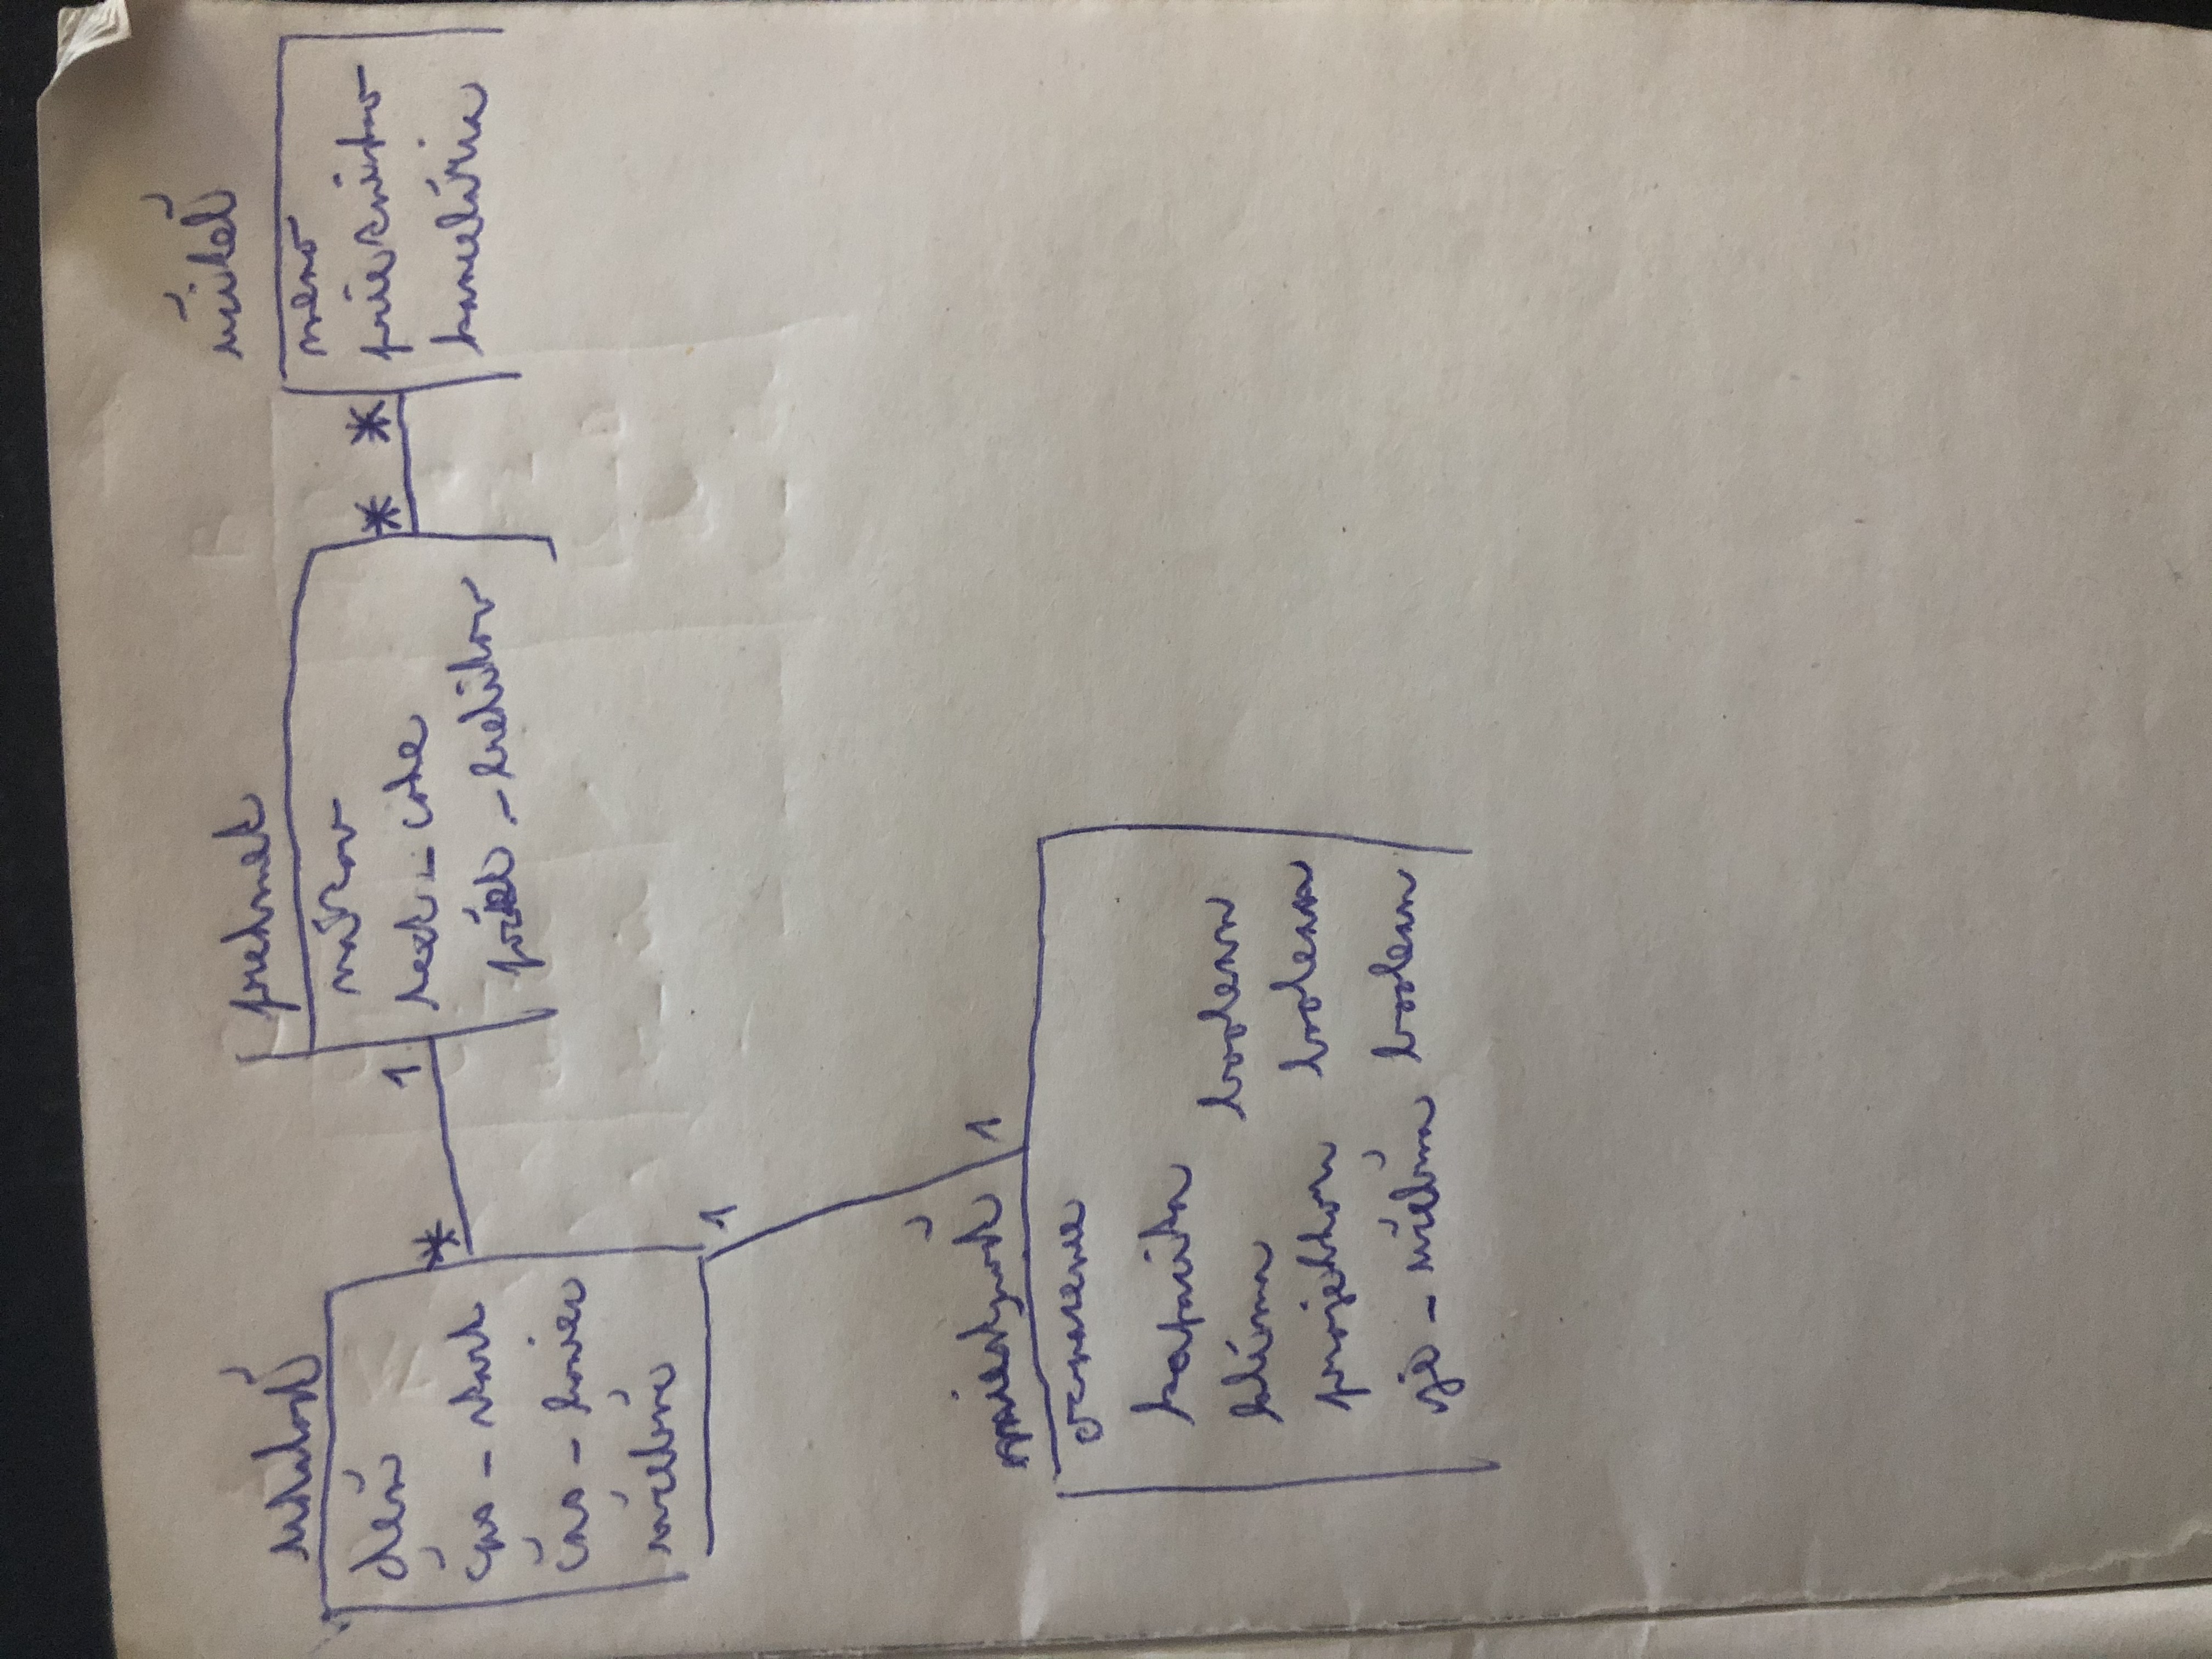 udalosť
deň
čas - start
čas - koniec
učebne
*
1
predmet
názov
text - code
počet - kreditov
*
*
učiteľ
meno
priezvisko
kancelária
1
1
miestnosť
označenie
kapacita
klíma boolean
projektor boolean
je - učebňa boolean